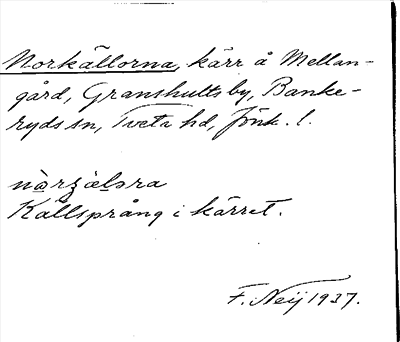 Norkällorna, kärr å Mellan-
gård, Granshults by, Banke-
ryds sn, Tveta hd, Jönk. l.
Källsprång i kärret.
F. Neij 1937.